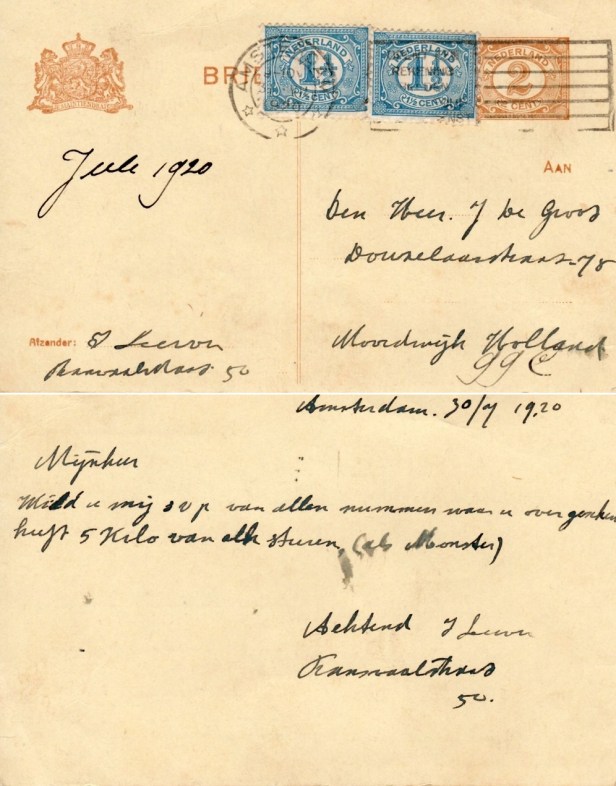 NEDERLAND
1½
1½ CENT
NEDERLAND
1½
1½ CENT
NEDERLAND
2
CENT
BRI
AMST
REKENING
Juli 1920
AAN
Den Heer. J De Groot
Douzelaarstraat 78
Noordwijk Holland
Afzender: J Leeven
Transvaalstraat 50
Amsterdam. 30/7 1920
Mijnheer
Wild u mij s v p van allen nummer waar u over
heeft 5 Kilo van elk sturen, (als Monster)
Achtend J Leeven
Transvaalstraat
50.